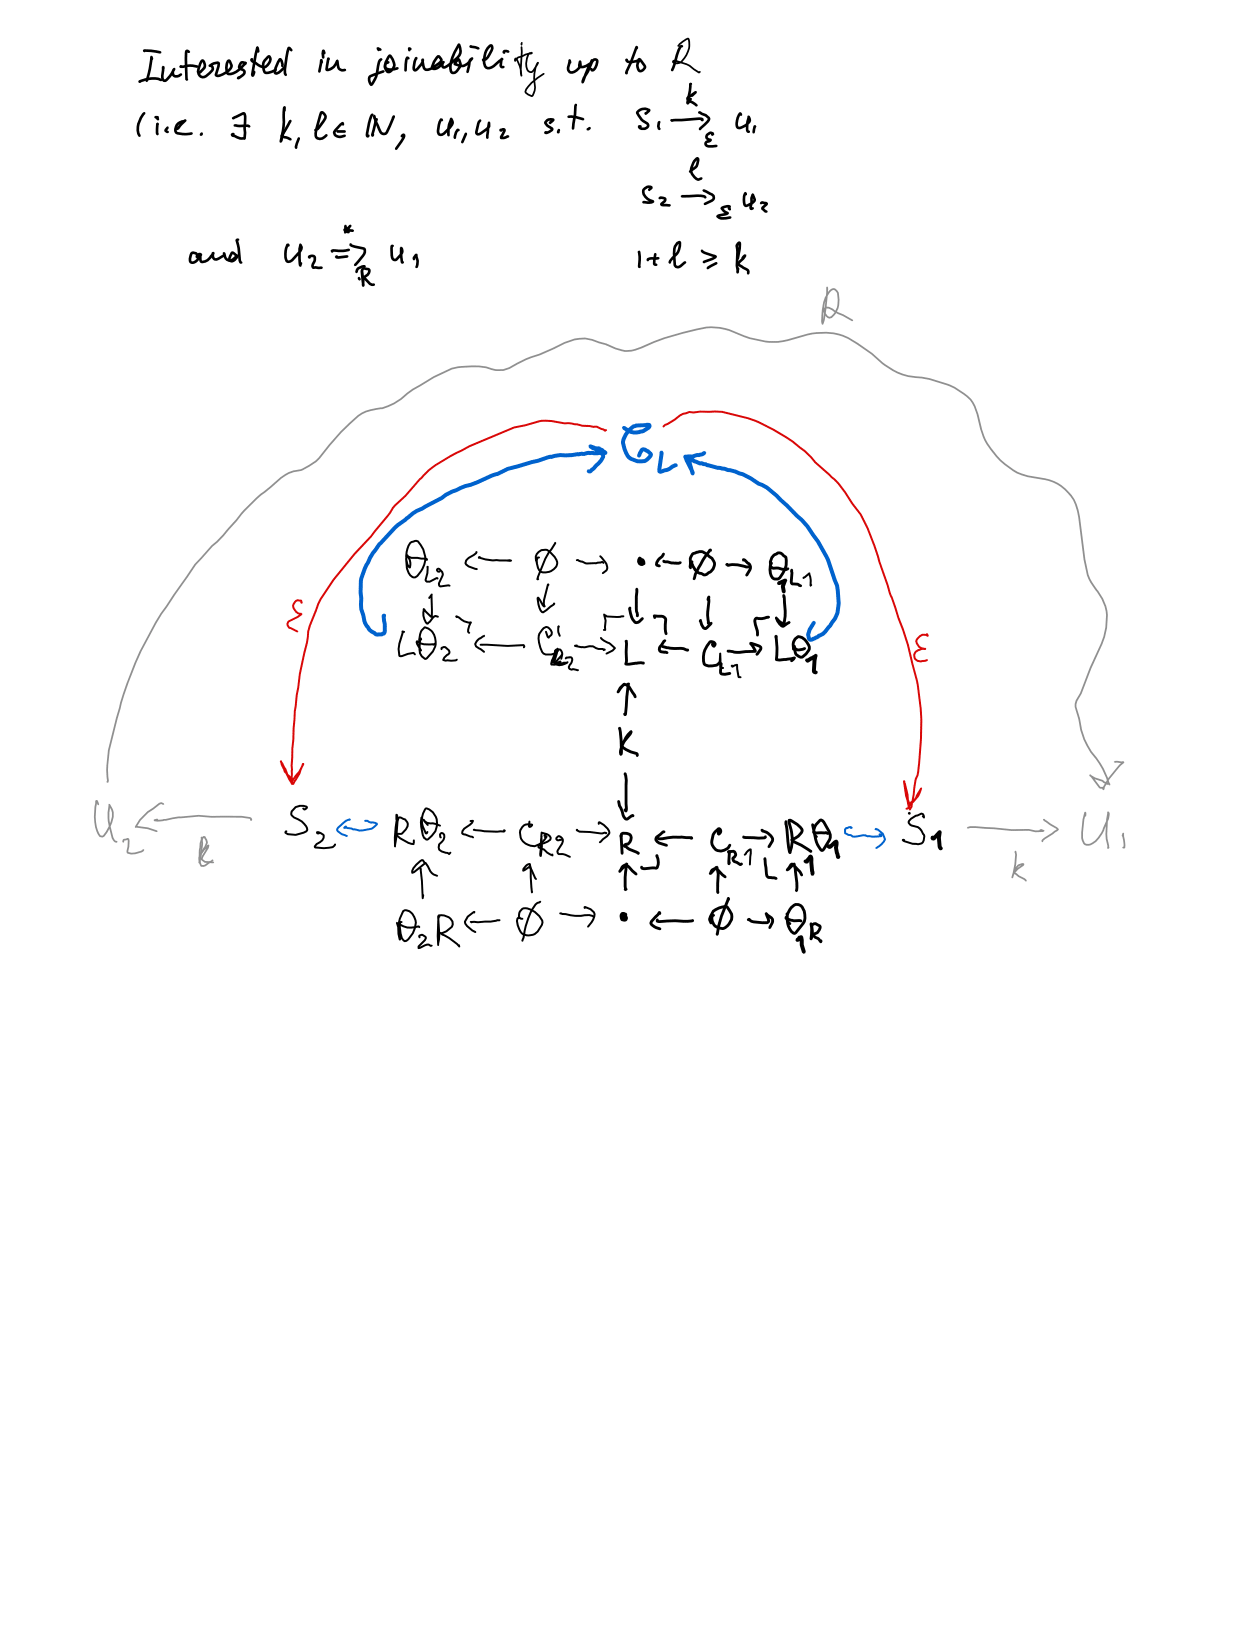 Interested in joinability up to R
(i.e. ∃ k, l ∈ ℕ, u₁, u₂ s.t. S₁ →ᵏ_ε u₁
S₂ →ˡ_ε u₂
and u₂ ⇒*_R u₁ 1+l ≥ k
R
G_L
θ_L2 ← ∅ → • ← ∅ → θ_L1
ε Lθ₂ ← C'_R2 → L ← C_L1 → Lθ₁ ε
K
u₂ ← S₂ ↔ Rθ₂ ← C_R2 → R ← C_R1 → Rθ₁ ↔ S₁ → u₁
l k
θ₂R ← ∅ → • ← ∅ → θ₁R